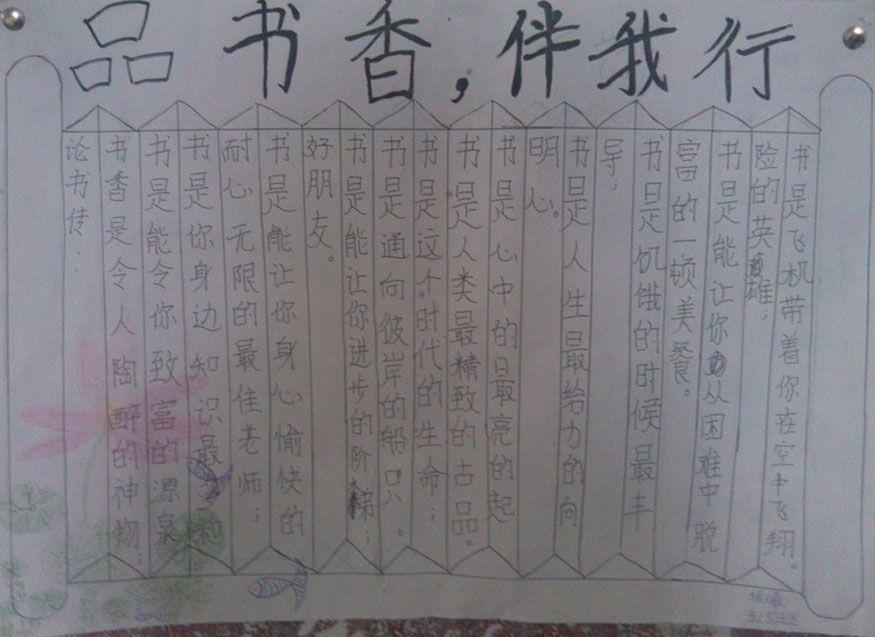 品书香,伴我行
论书传:
书香是令人陶醉的神物;
书是能令你致富的源泉
书是你身边知识最 和
耐心无限的最佳老师;
书是能让你身心愉快的
好朋友。
书是能让你进步的阶梯;
书是通向彼岸的船只。
书是这个时代的生命;
书是人类最精致的古品。
书是心中的最亮的起
明心。
书是人生最给力的向
导;
书是饥饿的时候最丰
富的一顿美餐。
书是能让你从困难中脱
险的英雄;
书是飞机带着你在空中飞翔。